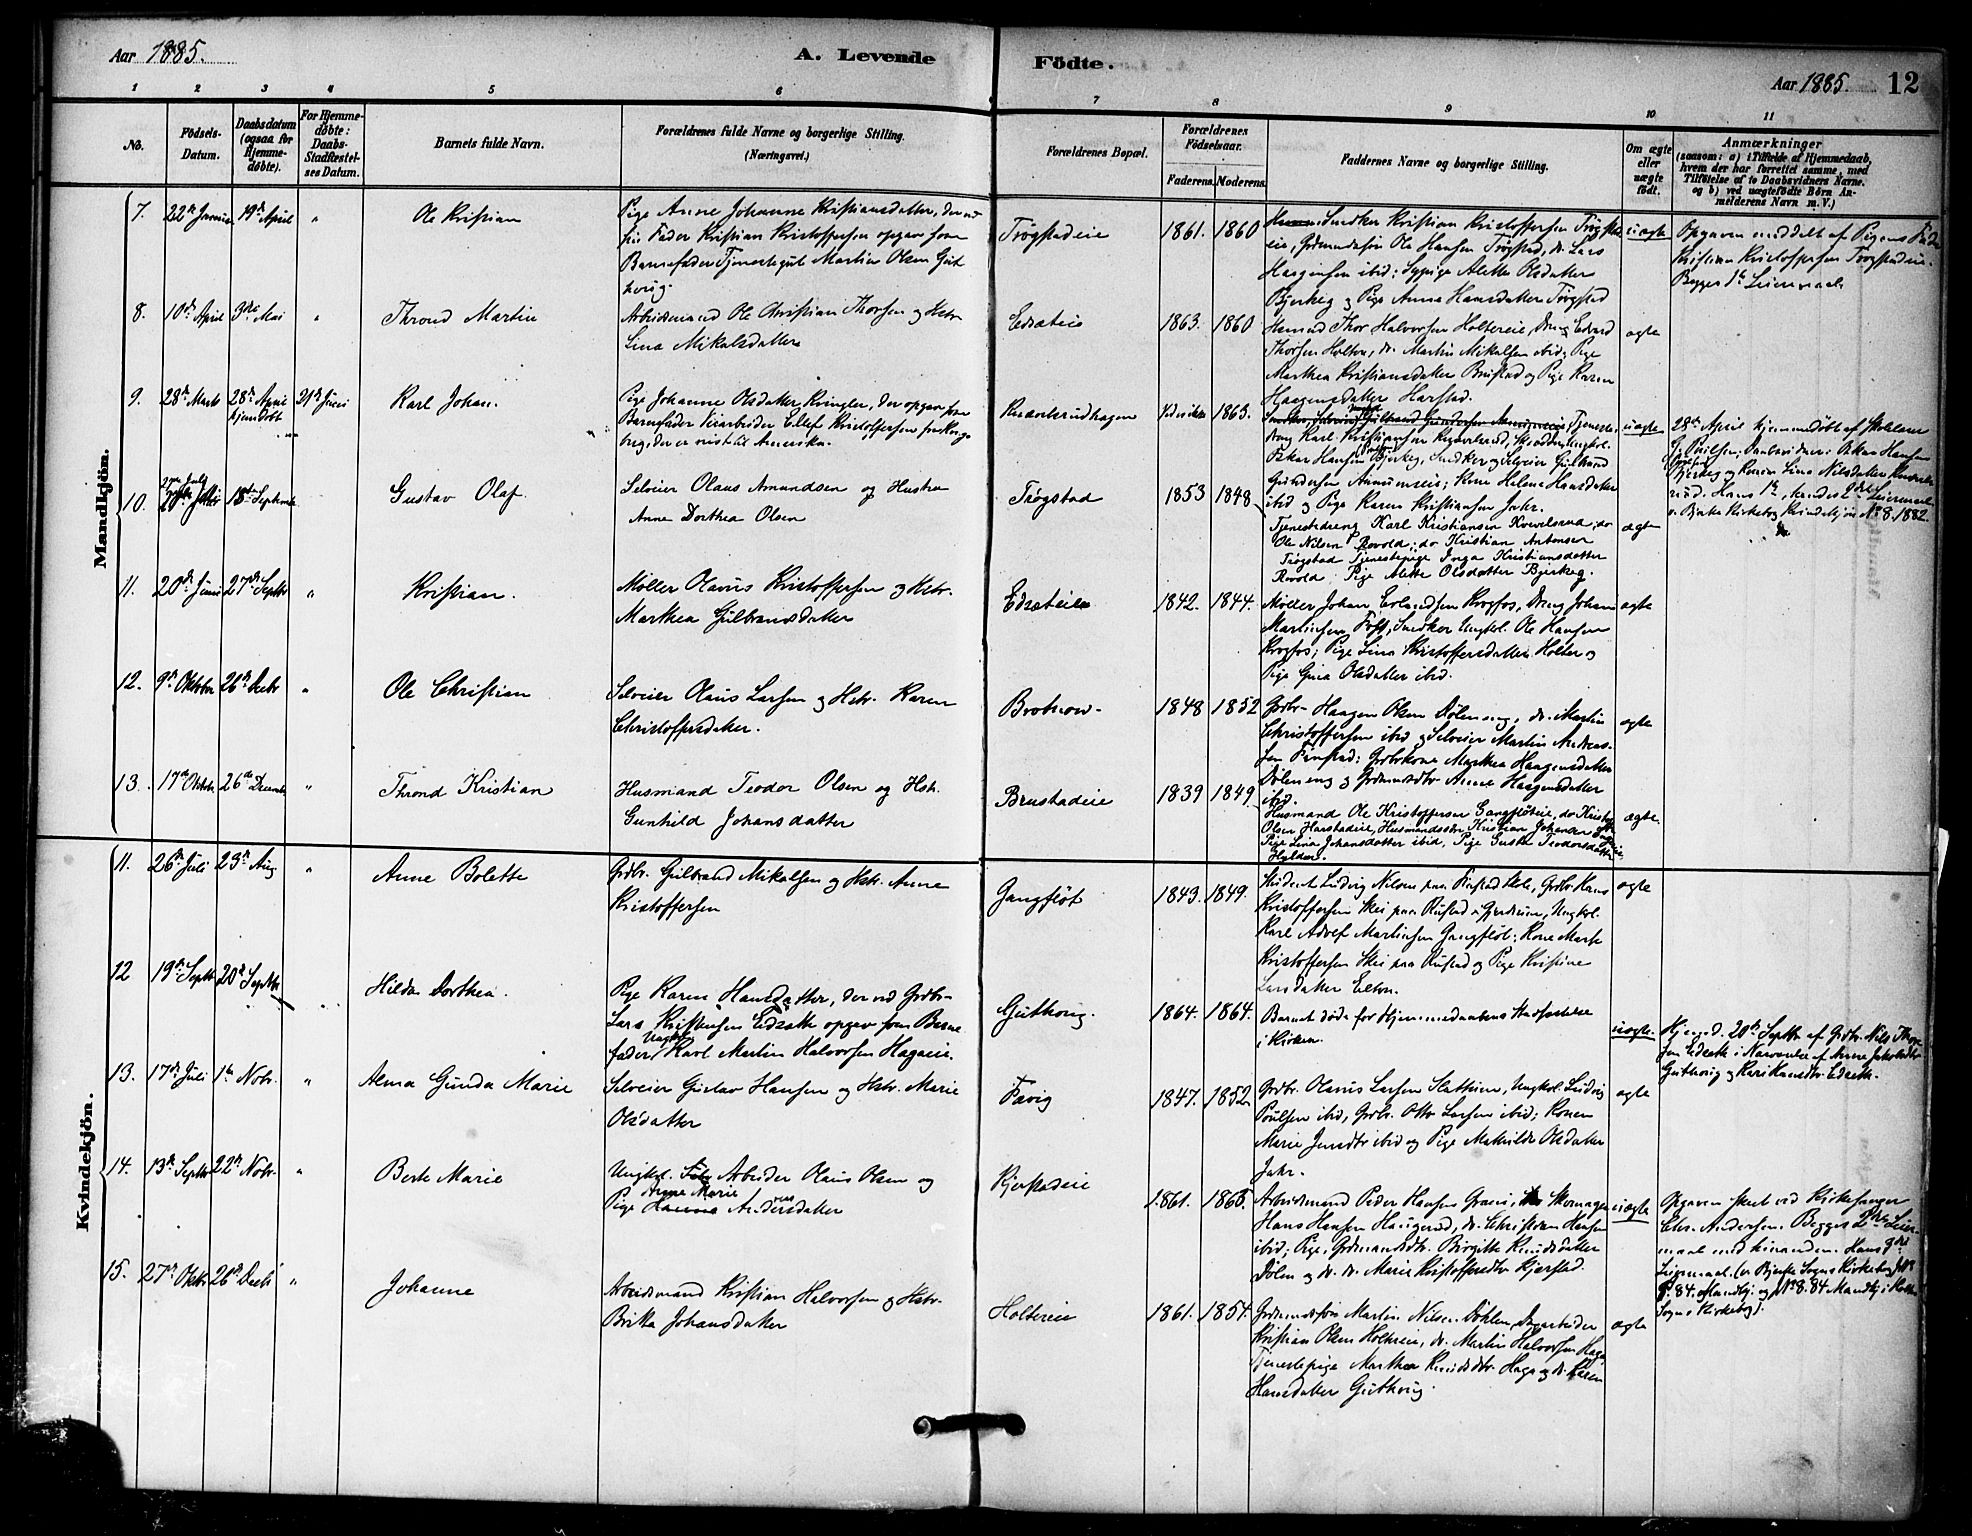 Aar 1885.
A. Levende
Födte.
Aar 1885.
12
1 2 3 4 5 6 7 8 9 10 11
No.
Födsels-Datum.
Daabsdatum (ogsaa for Hjemme-döbte).
For Hjemme-döbte: Daabs-Stadfæstel-ses Datum.
Barnets fulde Navn.
Forældrenes fulde Navne og borgerlige Stilling. (Næringsvei.)
Forældrenes Bopæl.
Forældrenes Födselsaar.
Faderens. Moderens.
Faddernes Navne og borgerlige Stilling.
Om ægte eller uægte födt.
Anmærkninger
(saasom: a) i Tilfælde af Hjemmedaab, hvem der har forrettet samme, med Tilföielse af to Daabsvidners Navne. og b) ved uægtefödte Börn An-melderens Navn m. V.)
Mandkjön.
7. 22de Januar 19de April " Ole Kristian
Pige Anne Johanne Kristiansdatter, der ved
sin Fader Kristian Kristoffersen opgav som
Barnefader Tjenestegut Martin Olsen Gut
hovig.
Trøgstadeie 1861. 1860
Snedker Kristian Kristoffersen Trøgstad
eie, Grdmandssøn Ole Hansen Trøgstad, do. Lars
Haagensen ibid; Sypige Alette Olsdatter
Bjerkeg og Pige Anna Hansdatter Trøgstad
uægte
Opgaven meddelt af Pigens Fader
Kristian Kristoffersen Trøgstadeie.
Begges 1ste Leiermaal
8. 10de April 3die Mai " Thrond Martin
Arbeidsmand Ole Christian Thorsen og Hstr.
Lina Mikalsdatter
Edsateie 1863. 1860
Husmd Thor Halvorsen Holtereie, Dreng Edvard
Thorsen Holter, do. Martin Mikalsen ibid; Pige
Marthea Kristiansdatter Brustad og Pige Karen
Haagensdatter Harstad.
ægte
9. 28de Marts 28de April hjemdøbt 21de Juni Karl Johan.
Pige Johanne Olsdatter Kringler, der opgav som
Barnefader Veiarbeider Ellef Kristoffersen fra Kongs
berg, der er reist til Amerika.
1863.
Tjeneste-
dreng Karl Kristiansen
Oskar Hansen Bjerkeg, Snedker og Selveier Gulbrand
Gundersen Amundseie; Kone Helene Hansdatter
ibid og Pige Karen Kristiansen Jahr.
uægte
28de April hjemmedøbt af Skolelærer
Poulsen; Daabsvidner: Oskar Hansen
Bjerkeg og Konen Lina Nilsdatter
Hans 1ste, hendes 2det Leiermaal
v. Bjerke Kirkebog Kvindekjøn No 8. 1882.
10. 13de September Gustav Olaf
Selveier Olaus Amundsen og Hustru
Anne Dorthea Olsen
Trøgstad 1853 1848
Tjenestedreng Karl Kristiansen; do
Ole Nilsen Rovold; do Kristian Antonsen
Trøgstad Tjenestepige Inga Kristiansdatter
Rovold; Pige Alette Olsdatter Bjerkeg.
ægte
11. 20de Juni 27de Septbr " Kristian.
Møller Olaus Kristoffersen og Hstr.
Marthea Gulbrandsdatter
Edsateie 1842. 1844.
Møller Johan Erlandsen Krogfos, Dreng Johan
Martinsen Toft, Snedker Ungkl. Ole Hansen
Krogfos; Pige Lina Kristoffersdatter Holter og
Pige Gina Olsdatter ibid.
ægte
12. 9de Oktober 26de Decbr " Ole Christian
Selveier Olaus Larsen og Hstr. Karen
Christoffersdatter.
1848 1852
Grdbr. Haagen Olsen Døleneng, do. Martin
Christoffersen ibid og Selveier Martin Andreas-
sen; Grdbrkone Marthea Haagensdatter
Døleneng og Grdmandsdtr Anne Haagensdatter
ibid.
ægte
13. 17de Oktober 26de December " Thrond Kristian
Husmand Teodor Olsen og Hstr.
Gunhild Johansdatter
Brustadeie 1839 1849.
Husmand Ole Kristoffersen Gangfløteie, do Kristian
Olsen Harstadeie, Husmandssøn Kristian Johansen
Pige Lina Johansdatter ibid, Pige Gusta Teodorsdatter
ægte.
Kvindekjön.
11. 26de Juli 23de Aug. " Anne Bolette
Grdbr. Gulbrand Mikalsen og Hstr. Anne
Kristoffersen
Gangfløt 1843. 1849.
Student Ludvig Nilsen paa Finstad Skole, Grdbr. Hans
Kristoffersen Skei paa Rustad i Gjerdrum, Ungkl.
Karl Adolf Martinsen Gangfløt; Kone Marte
Kristoffersen Skei paa Rustad og Pige Kristine
Larsdatter Elton.
ægte
12 19de Septbr 20de Septbr Hilda Dorthea.
Pige Karen Hansdatter, der ved Grdbr.
Lars Kristensen Eidsate opgav som Barne
fader Ungkl Karl Martin Halvorsen Hagaeie.
Guthovig. 1864. 1864.
Barnet døde før Hjemmedaabens Stadfæstelse
i Kirken.
uægte.
Hjemd. 20de Septbr af Grdbr. Nils Thor
sen Eidsate i Nærværelse af Anne Jakobsdtr
Guthovig og Kari Hansdtr. Edsate.
13. 17de Juli 1ste Nobr. " Alma Gunda Marie
Selveier Gustav Hansen og Hstr. Marie
Olsdatter
1847. 1852
Grdbr. Olaus Larsen Slattum, Ungkl. Ludvig
Poulsen ibid, Grdbr. Otto Larsen ibid; Konen
Marie Jensdtr ibid og Pige Mathilde Olsdatter
Jahr.
ægte
14. 13de Septbr 22de Nobr. " Berte Marie
Ungkl. Arbeider Olaus Olsen og
Pige Anne Marie Andersdatter
Kjerstadeie 1861. 1865.
Arbeidsmand Peder Hansen, Skomager
Hans Hansen Haugerud, do. Christian Hansen
ibid; Pige, Grdmandsdtr. Birgitte Knudsdatter
Dølen og do. do. Marie Kristoffersdtr Kjerstad.
uægte
Opgaven skeet ved Kirkesanger
Chr. Andersen. Begges 2det Leier-
maal med hinanden. Hans 3die
Leiermaal. (v. Bjerke Sogns Kirkebog No
8. 84. Mandkj. og No. 8. 84 Mandkj. i Holter
Sogns Kirkebog).
15. 27de Oktbr 26de Decbr " Johanne
Arbeidsmand Kristian Halvorsen og Hstr.
Britta Johansdatter
Holtereie 1861. 1854.
Grdmandssøn Martin Nilsen Døhlen, Dagarbeider
Kristian Olsen Holtereie, do. Martin Halvorsen Haga,
Tjenestepige Marthea Knudsdtr. Haga og do. Karen
Hansdatter Guthovig.
ægte